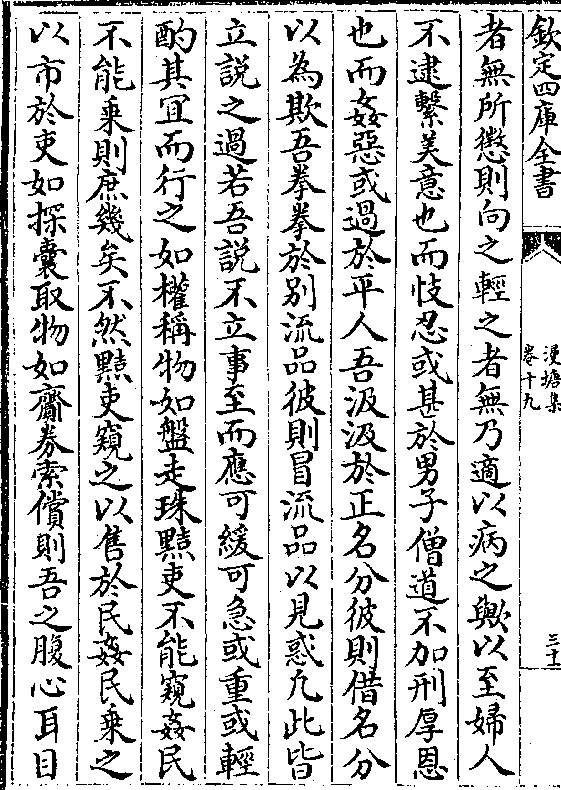 欽定四庫全書
漫塘集
卷十九
三十
者無所懲則向之輕之者無乃適以病之歟以至婦人
不逮繫美意也而忮忍或甚於男子僧道不加刑厚恩
也而姦惡或過於平人吾汲汲於正名分彼則借名分
以為欺吾拳拳於別流品彼則冒流品以見惑凡此皆
立説之過若吾説不立事至而應可緩可急或重或輕
酌其宜而行之如權稱物如盤走珠黠吏不能窺姦民
不能乗則庶幾矣不然黠吏窺之以售於民姦民乗之
以市於吏如探囊取物如齎券索償則吾之腹心耳目